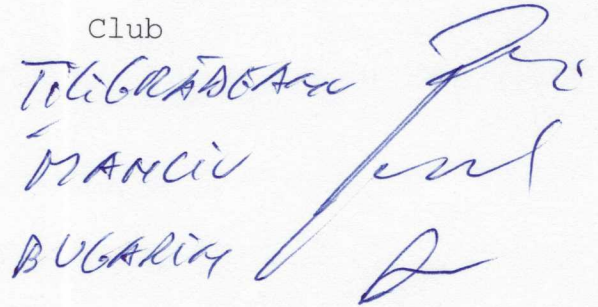 Club
TILIGRĂDEANU
MANCIU
BUGARIN